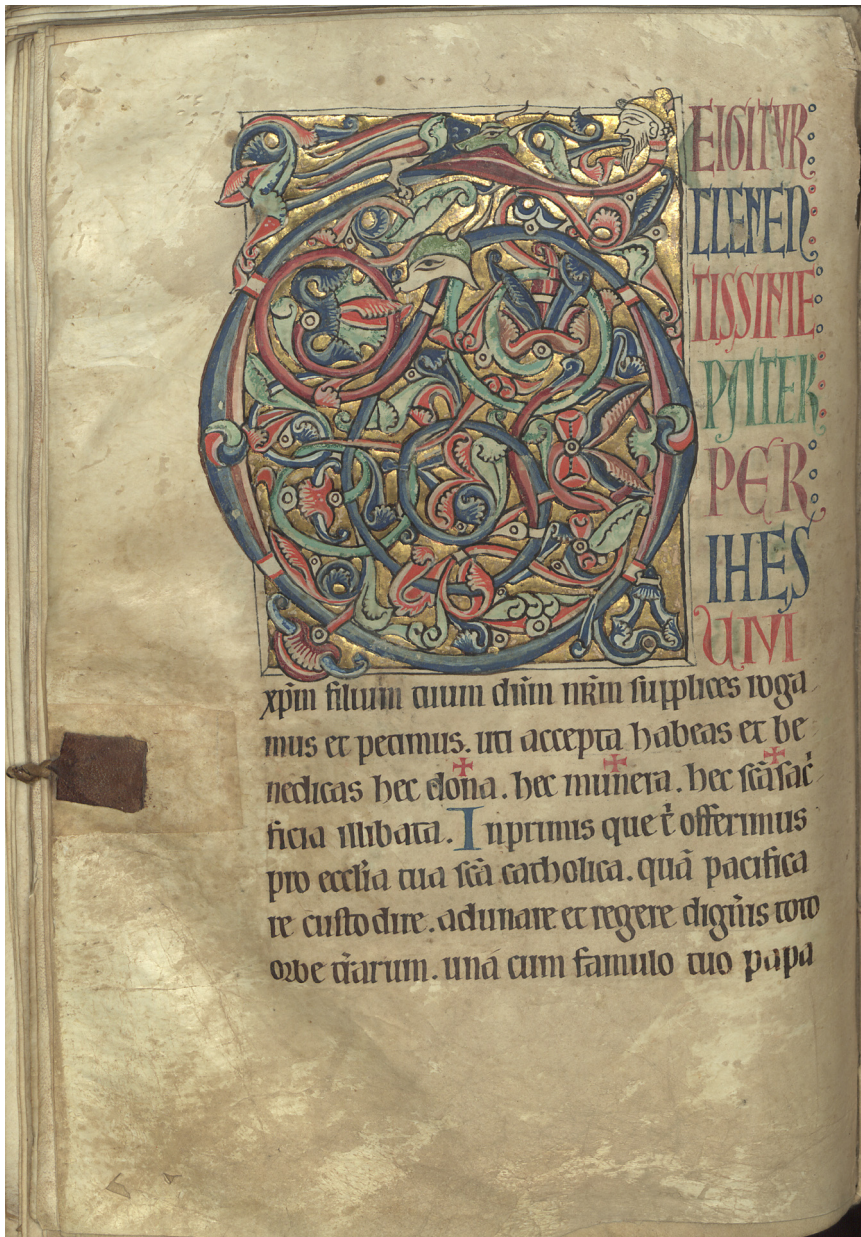 T
EIGITVR
CLEMEN
TISSIME
PATER
PER
IHES
UM
xp̄m filium tuum dn̄m nr̄m supplices roga
mus et petimus. uti accepta habeas et be
nedicas hec dona. hec munera. hec sc̄a sac̓
ficia illibata. Inprimis que t̓ offerimus
pro eccl̄ia tua sc̄a catholica. quā pacifica
re custodire. adunare et regere digneris toto
orbe t̓rarum. una cum famulo tuo papa